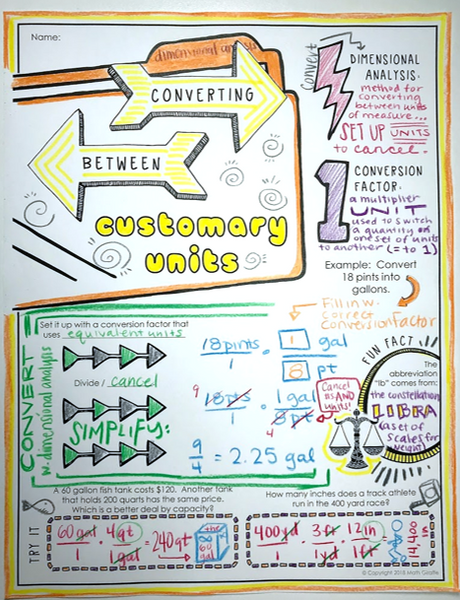 Name:
dimensional analysis
CONVERTING
BETWEEN
customary
units
convert
DIMENSIONAL
ANALYSIS:
method for
converting
between units
of measure...
SET UP UNITS
to cancel.
1
CONVERSION
FACTOR:
a multiplier
UNIT
used to switch
a quantity on
one set of units
to another (= to 1)
Example: Convert
18 pints into
gallons.
Fill in w.
correct
Conversion Factor
Set it up with a conversion factor that
uses equivalent units
CONVERT
w. dimensional analysis
Divide / cancel
SIMPLIFY:
18 pints . 1 gal
1 8 pt
9
18 pts . 1 gal
1 8 pt
4
Cancel
#s AND
units!
9/4 = 2.25 gal
FUN FACT
The
abbreviation
"lb" comes from:
the constellation
LIBRA
(a set of
scales for
weight)
TRY IT
A 60 gallon fish tank costs $120. Another tank
that holds 200 quarts has the same price.
Which is a better deal by capacity?
60 gal . 4 qt = 240 qt
1 1 gal
the
60
gal
How many inches does a track athlete
run in the 400 yard race?
400 yd . 3 ft . 12 in =
1 1 yd 1 ft
14,400
in
© Copyright 2018 Math Giraffe